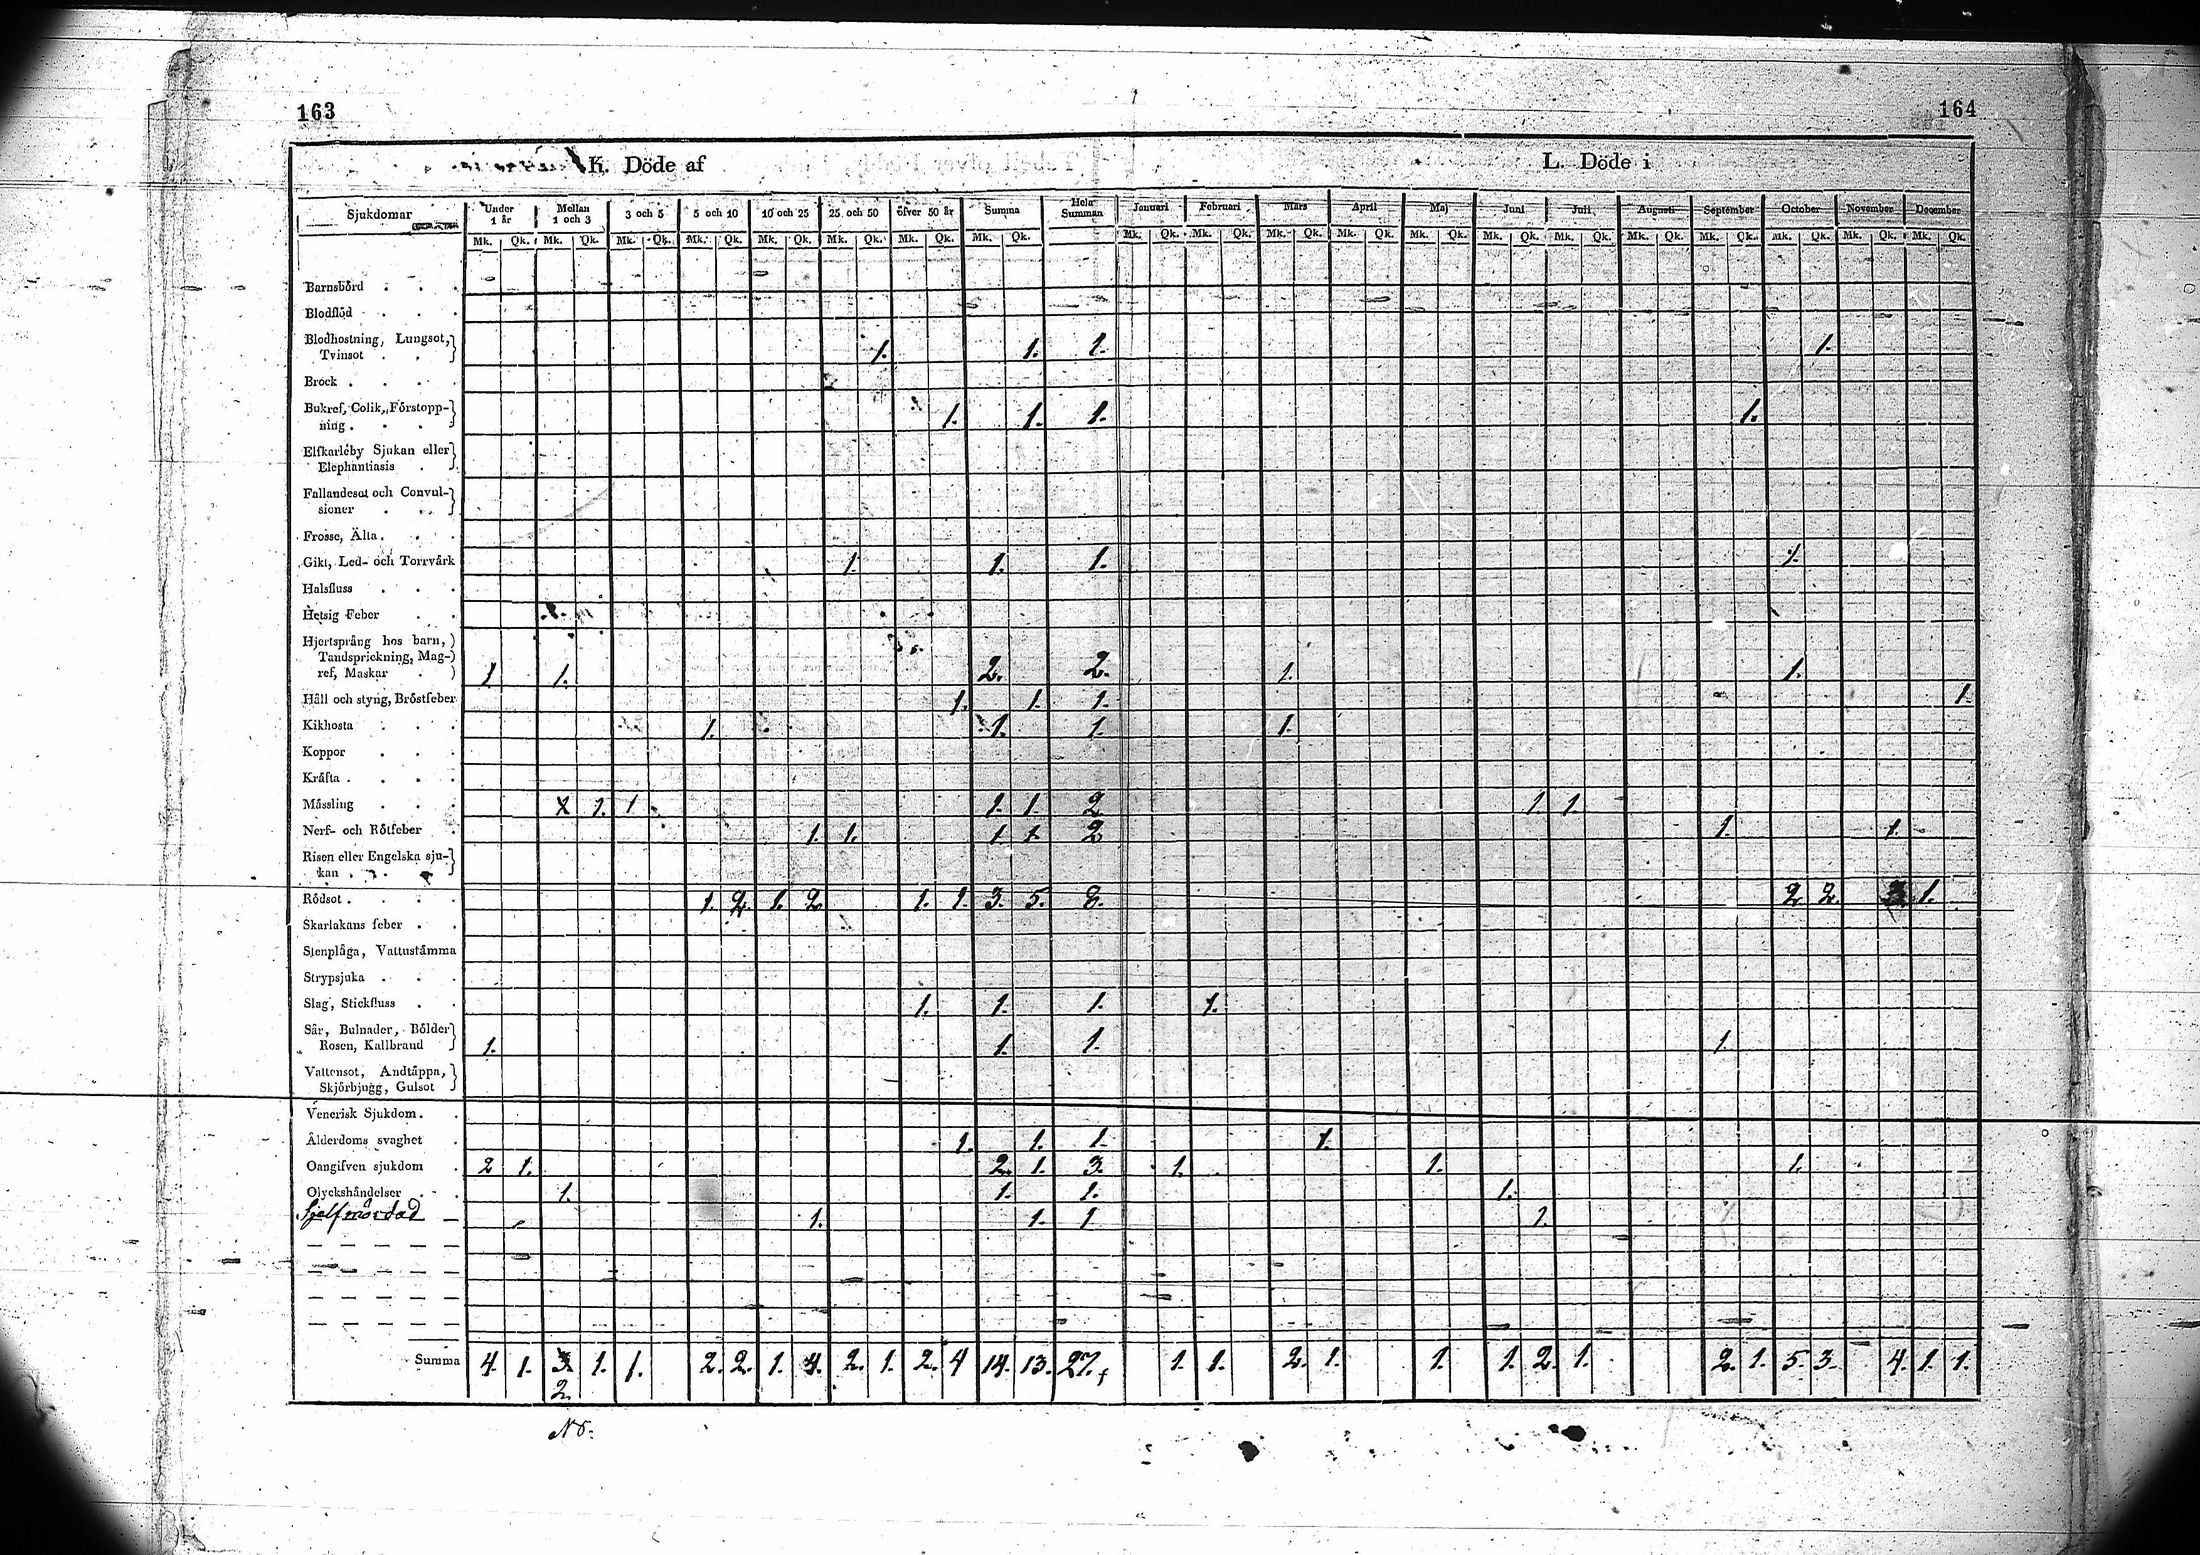 163
164
K. Döde af
L. Döde i
Sjukdomar Under 1 år Mellan 1 och 3 3 och 5 5 och 10 10 och 25 25 och 50 öfver 50 år Summa Hela Summan Januari Februari Mars April Maj Juni Juli Augusti September October November December
Mk. Qk. Mk. Qk. Mk. Qk. Mk. Qk. Mk. Qk. Mk. Qk. Mk. Qk. Mk. Qk. Mk. Qk. Mk. Qk. Mk. Qk. Mk. Qk. Mk. Qk. Mk. Qk. Mk. Qk. Mk. Qk. Mk. Qk. Mk. Qk. Mk. Qk. Mk. Qk.
Barnsbörd
Blodflöd
Blodhostning, Lungsot,
Tvinsot 1. 1. 1. 1.
Bråck
Bukref, Colik, Förstopp-
ning 1. 1. 1. 1.
Elfkarleby Sjukan eller
Elephantiasis
Fallandesot och Convul-
sioner
Frosse, Älta
Gikt, Led- och Torrvärk 1. 1. 1. 1.
Halsfluss
Hetsig Feber
Hjertsprång hos barn,
Tandsprickning, Mag-
ref, Maskar 1 1. 2. 2. 1. 1.
Håll och styng, Bröstfeber 1. 1. 1. 1.
Kikhosta 1. 1. 1. 1.
Koppor
Kräfta
Mässling 1. 1 1. 1. 2 1 1.
Nerf- och Rötfeber 1. 1. 1 1. 2 1. 1.
Risen eller Engelska sju-
kan
Rödsot 1. 2. 1. 2 1. 1. 3. 5. 8. 2 2. 3 1.
Skarlakans feber
Stenplåga, Vattustämma
Strypsjuka
Slag, Stickfluss 1. 1. 1. 1.
Sår, Bulnader, Bölder
Rosen, Kallbrand 1. 1. 1. 1.
Vattensot, Andtäppa,
Skjörbjugg, Gulsot
Venerisk Sjukdom
Ålderdoms svaghet 1. 1. 1. 1.
Oangifven sjukdom 2 1. 2. 1. 3. 1. 1. 1.
Olyckshändelser 1. 1. 1. 1.
Sjelfmördad 1. 1. 1 1.
Summa 4. 1. 3. 1. 1. 2. 2. 1. 4. 2. 1. 2. 4 14. 13. 27. 1. 1. 2. 1. 1. 1. 2. 1. 2. 1. 5. 3. 4. 1. 1.
2